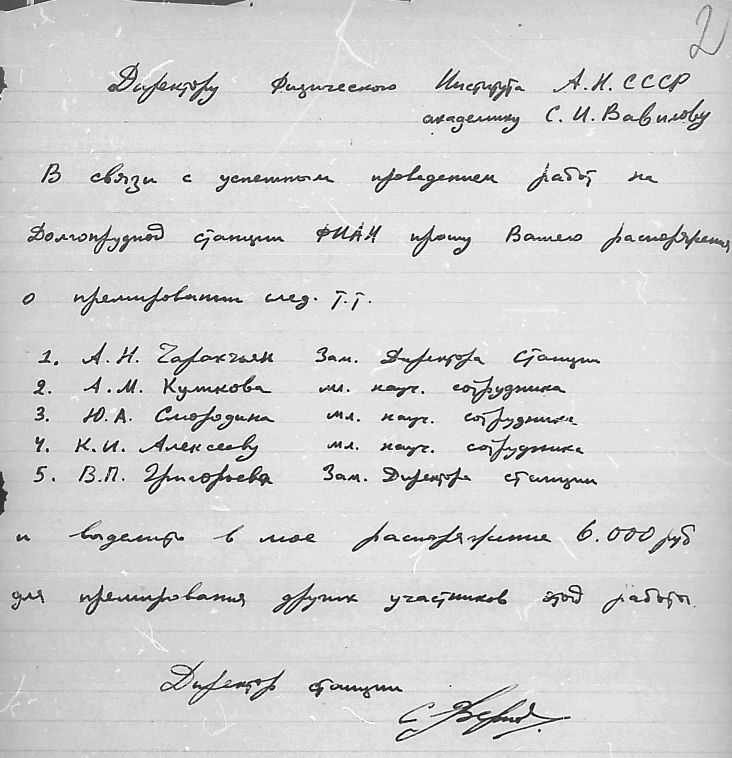 2
Директору Физического Института А.Н.СССР
академику С. И. Вавилову
В связи с успешным проведением работ на
Долгопрудной станции ФИАН прошу Вашего распоряжения
о премировании след. т.т.
1. А. Н. Чарахчьян Зам. Директора станции
2. А. М. Куликова мл. науч. сотрудника
3. Ю. А. Смородина мл. науч. сотрудника
4. К. И. Алексееву мл. науч. сотрудника
5. В. П. Григорьева Зам. Директора станции
и выделить в мое распоряжение 6.000 руб
для премирования других участников этой работы.
Директор станции
С.